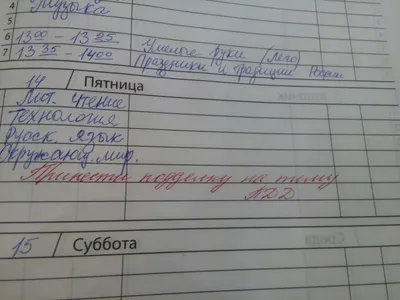 4 Музыка
5
6 13 00 – 13 25 Умелые руки (Лего)
7 13 35 – 14 00 Праздники и традиции России
14 / Пятница
Лит. чтение
Технология
Русск. язык
Окружающ. мир.
Принести подделку на тему
ПДД
15 / Суббота
Среда